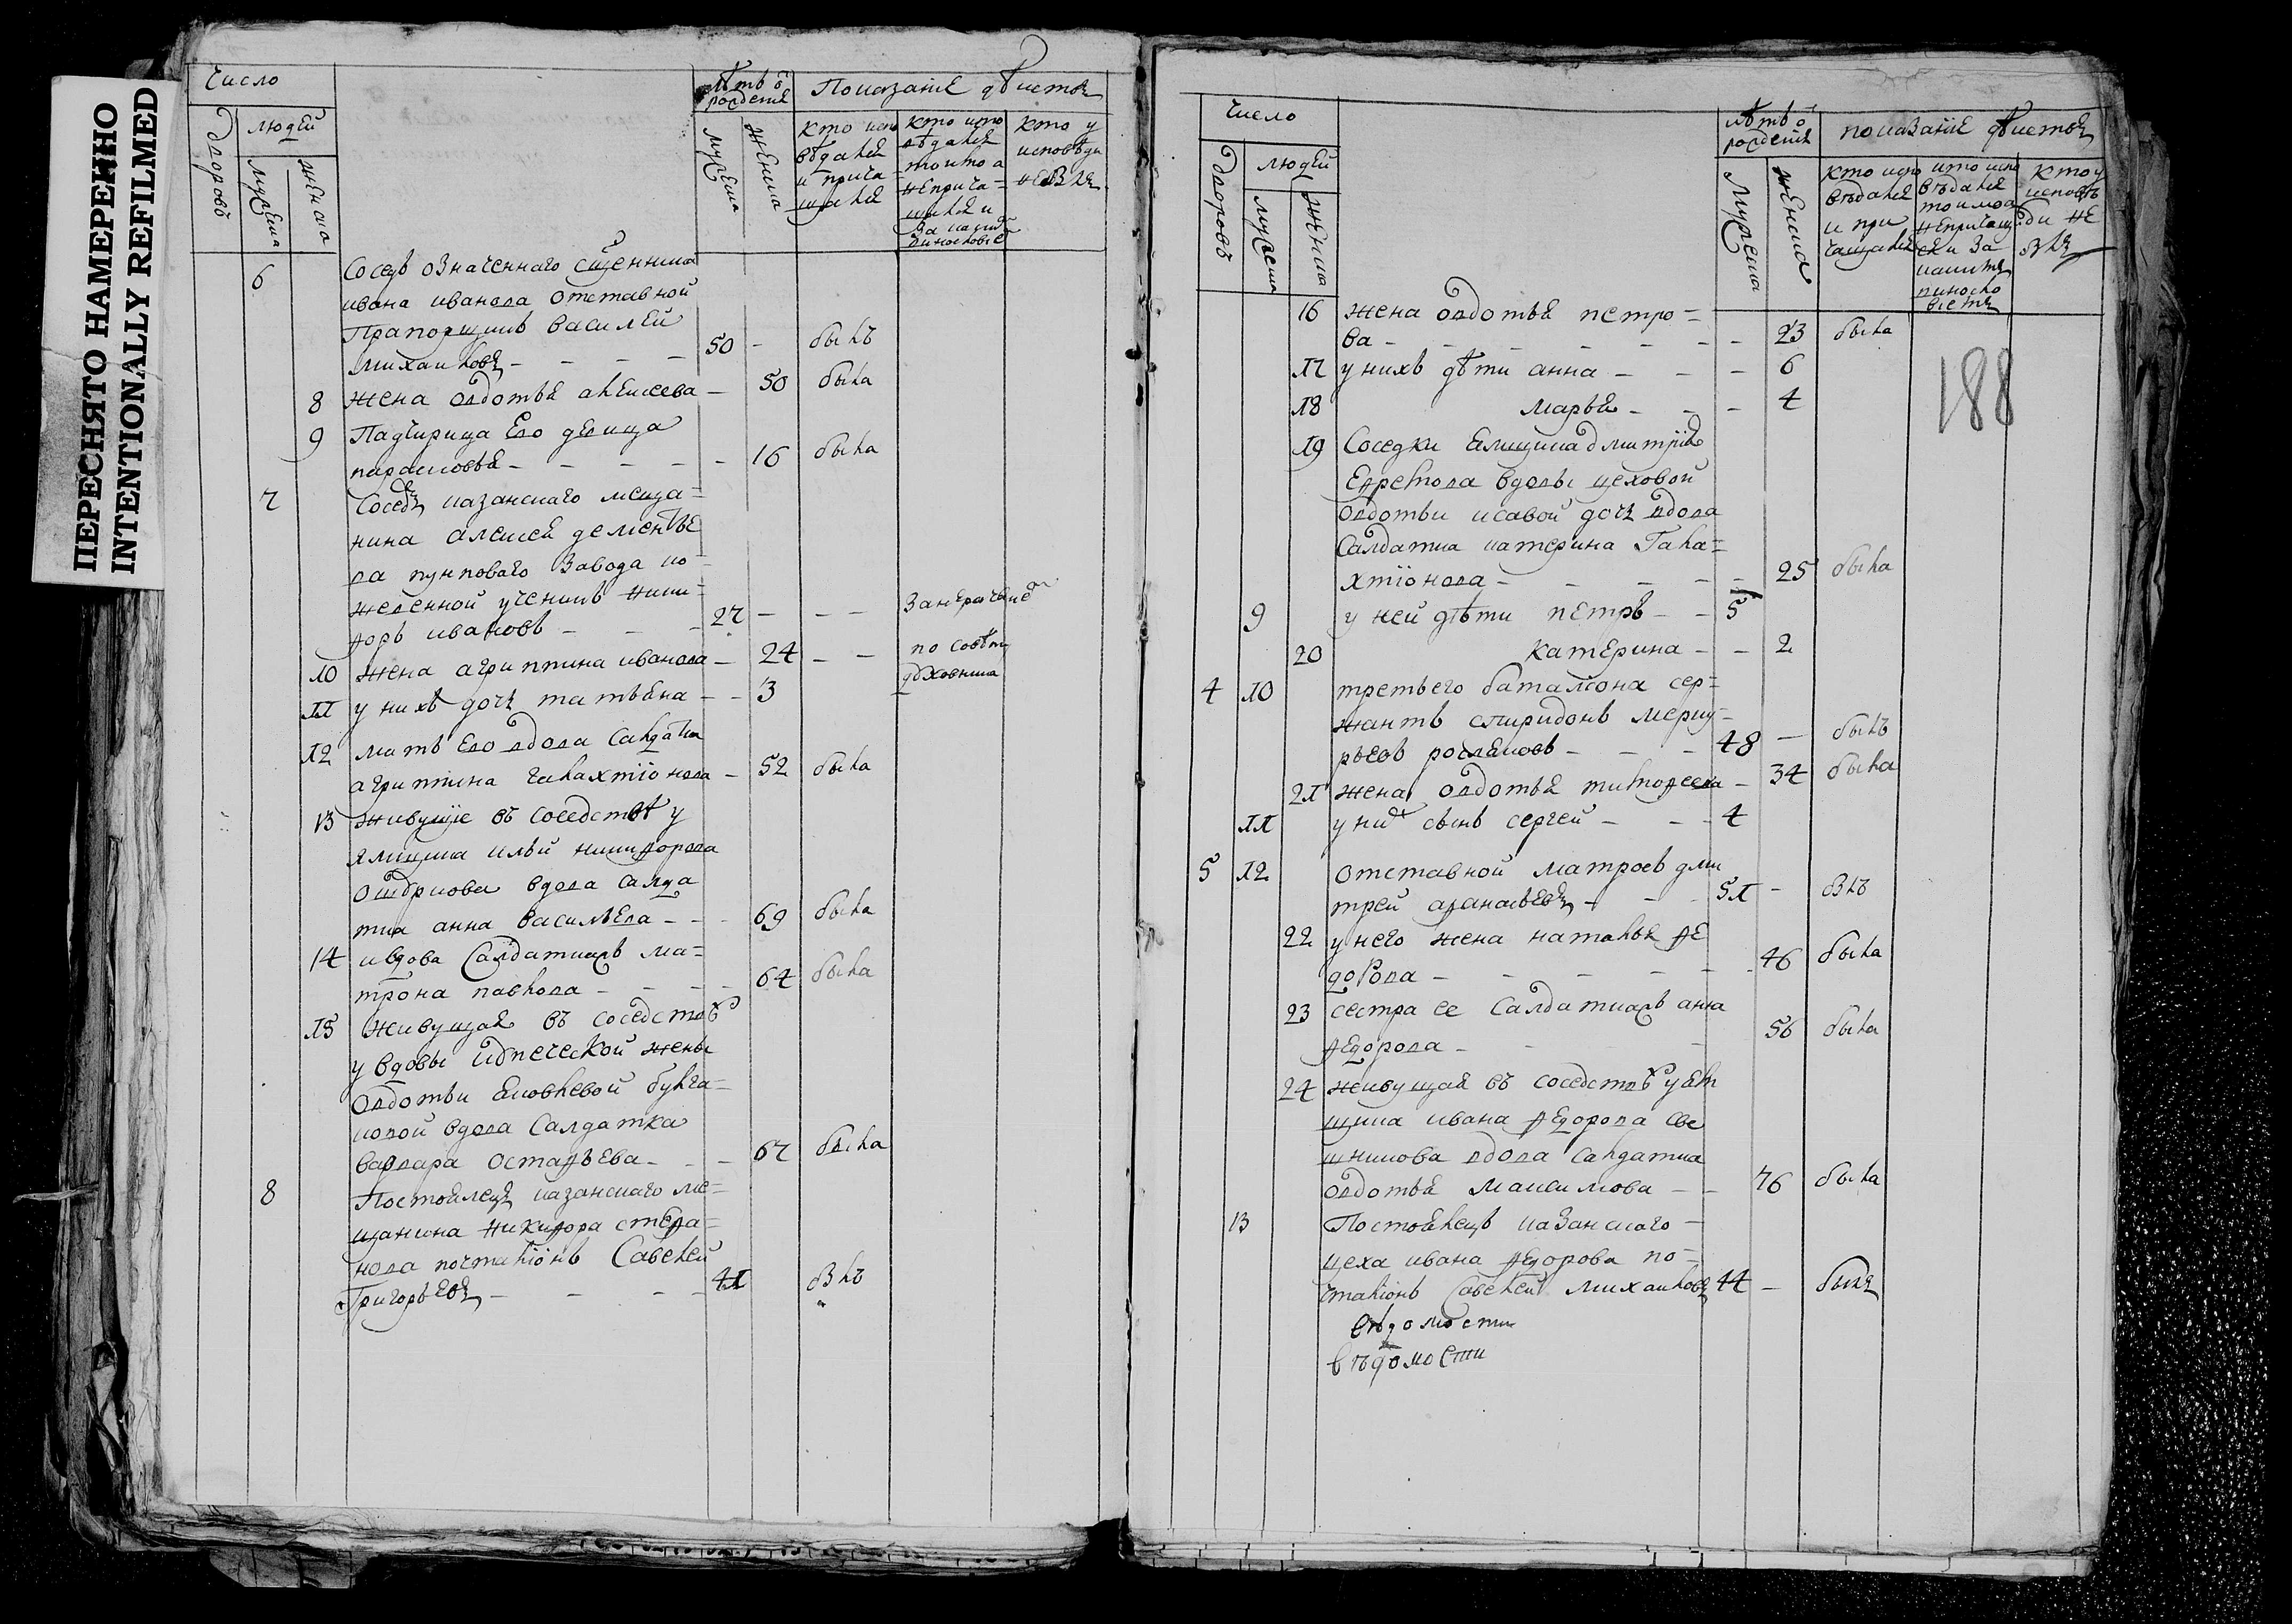 ПЕРЕСНЯТО НАМЕРЕННО
INTENTIONALLY REFILMED
Число
Дворовъ
людей
мужеска
женска
лѣтъ ѿ рожденія
мужеска
женска
Показаніе дѣйствъ
кто исповѣдался и причащался
кто исповѣдался токмо а не причащался и за каким
кто у исповѣди не былъ
6 Сосѣдъ означеннаго сщенника
ивана иванова отставной
Прапорщикъ василей
михаиловъ - - - - 50 - былъ
8 жена овдотья алексеева - 50 была
9 Падчирица Его девица
парасковья - - - - - 16 была
7 Соседъ казанскаго меща=
нина алексея дементье
ва пумповаго завода ко
жевенной ученикъ ники=
форъ ивановъ - - - 27 - - -
10 жена агриппина иванова - 24 - - по совѣту
духовника
11 у нихъ дочь татьяна - - 3
12 мать Его вдова салдатка
агриппина галахтіонова - 52 была
13 живущіе въ соседствѣ у
ямщика ильи никифорова
вдова салда
тка анна васильева - - - 69 была
14 и вдова Салдатка ма=
трона павлова - - - - 64 была
15 живущая въ соседствѣ
у вдовы купеческой жены
овдотьи яковлевой
вдова Салдатка
варвара остафьева - - - 67 была
8 Постоялецъ казанскаго ме=
щанина никифора стефа=
нова почталіонъ Савелей
Григорьевъ - - - - 41 былъ
Число
Дворовъ
людей
мужеска
женска
лѣтъ ѿ рожденія
мужеска
женска
показаніе дѣйствъ
кто исповѣдался и причащался
кто исповѣдался токмо а не причащался и за каким
кто у исповѣди не былъ
188
16 жена овдотья петро=
ва - - - - - - - 23 была
17 у нихъ дѣти анна - - - 6
18 марья - - - 4
19 Соседки ямщика дмитрія
вдовы цеховой
овдотьи исавой дочь вдова
Салдатка катерина Гала=
хтіонова - - - - - 25 была
9 у ней дѣти петръ - - 5
20 Катерина - - 2
4 10 третьего баталіона сер=
жантъ спиридонъ мерку=
рьевъ - - - 48 - былъ
21 жена овдотья тимофеева - 34 была
11 у них сынъ сергей - - - 4
5 12 отставной матросъ дми
трей афанасьевъ - - - 51 - былъ
22 у него жена наталья фе
дорова - - - - - 46 была
23 сестра ее Салдатка анна
федорова - - - 56 была
24 живущая въ соседствѣ у ям
щика ивана федорова све
шникова вдова салдатка
овдотья максимова - - 76 была
13 Постоялецъ казанскаго -
цеха ивана федорова по=
чталіонъ Савелей михаиловъ 44 - былъ
вѣдомости
вѣдомости